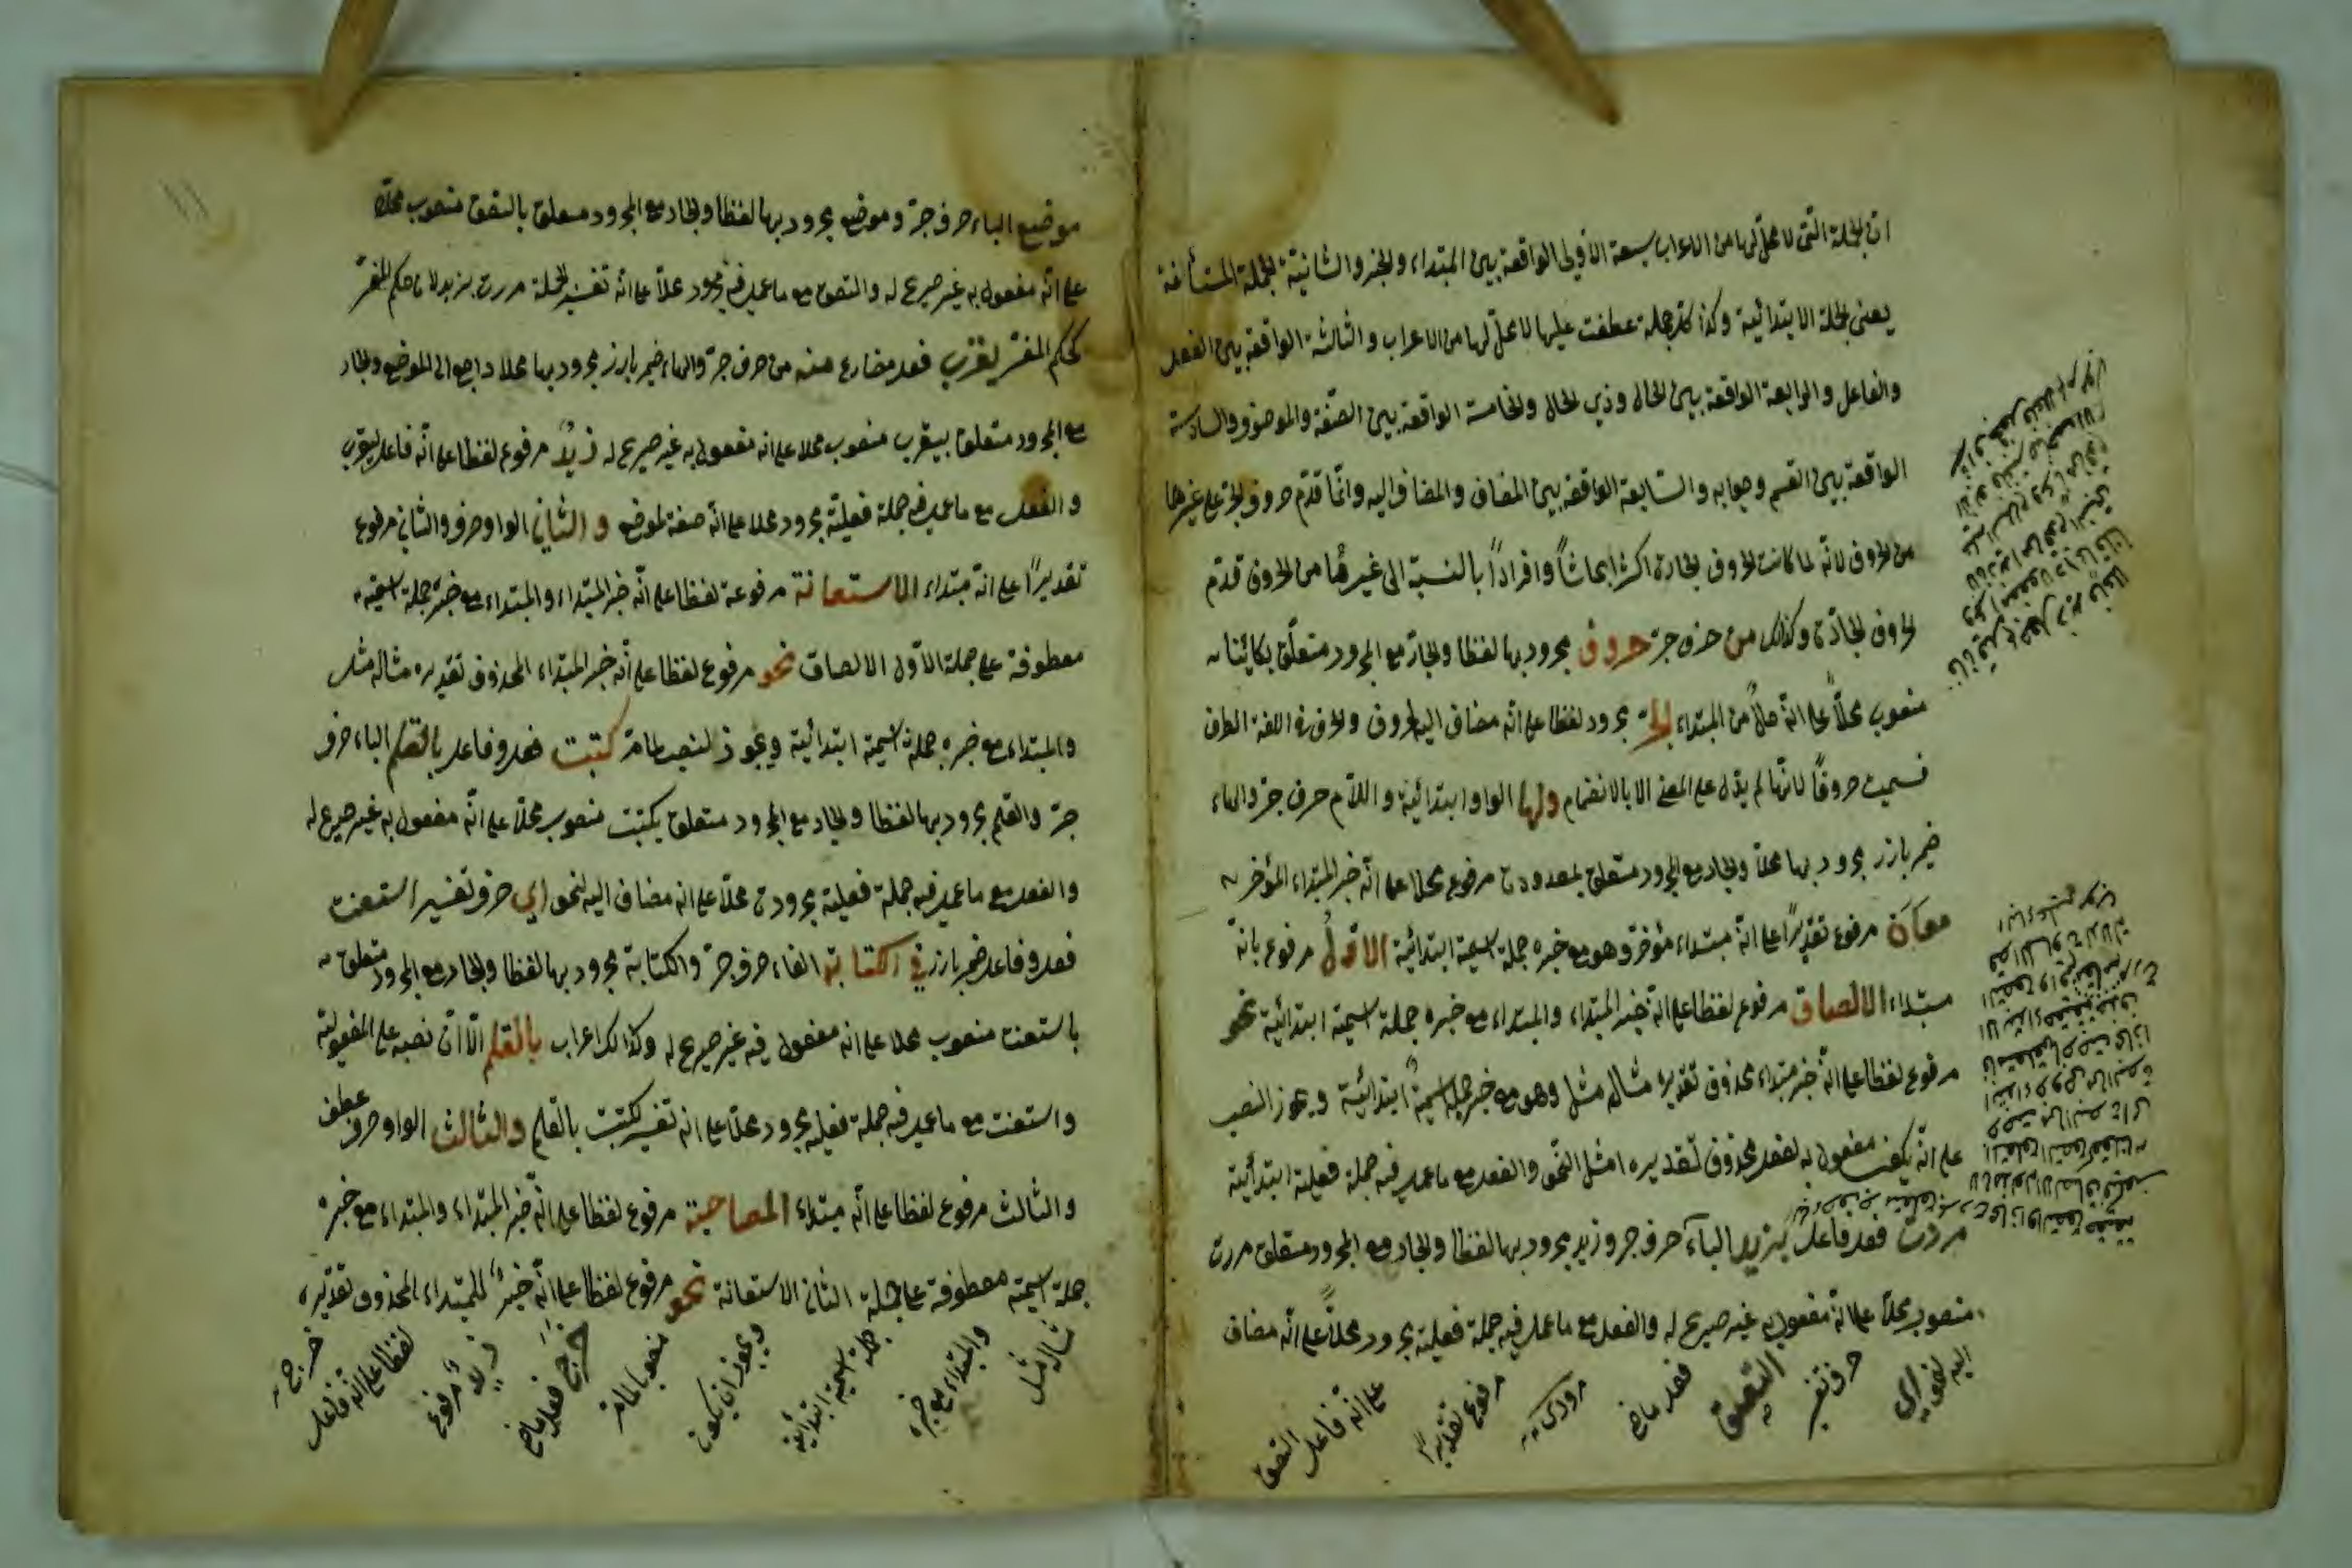 ان الجملة التى لا محل لها من الاعراب سبعة الأولى الواقعة بين المبتداء والخبر والثانية الجملة المستأنفة
يعنى الجملة الابتدائية وكذا كل جملة عطفت عليها لا محل لها من الاعراب والثالثة الواقعة بين الفعل
والفاعل والرابعة الواقعة بين الحال وذي الحال والخامسة الواقعة بين الصفة والموصوف والسادسة
الواقعة بين القسم وجوابه والسابعة الواقعة بين المضاف والمضاف اليه وانما قدم حروف الجر على غيرها
من الحروف لانه لما كانت الحروف الجارة اكثر ابحاثاً وافراداً بالنسبة الى غيرها من الحروف قدم
الحروف الجارة وكذلك من حرف جر حروف مجرود بها لفظا والجار مع المجرود متعلق بكائنا
منصوب محلاً على انه حالاً من المبتداء الجر مجرود لفظا على انه مضاف اليه لحروف والحرف فى اللغة الطرف
فسميت حروفًا لانها لم يدل على المعنى الا بالانضمام ولها الواو ابتدائية و اللام حرف جر والهاء
ضمير بارز مجرود بها محلا والجار مع المجرود متعلق بمعدودة مرفوع محلا على انه خبر المبتداء المؤخر
معان مرفوع تقديرًا على انه مبتداء مؤخر وهو مع خبره جملة اسمية ابتدائية الاول مرفوع بانه
مبتداء الالصاق مرفوع لفظا على انه خبر المبتداء والمبتداء مع خبره جملة اسمية ابتدائية نحو
مرفوع لفظا على انه خبر مبتداء محذوف تقديره مثاله مثل وهو مع خبره جملة اسمية ابتدائية ويجوز النصب
على انه يكون مفعول به لفعل محذوف تقديره امثل النحو والفعل مع ما عمل فيه جملة فعلية ابتدائية
مررت فعل وفاعل بزيد الباء حرف جر وزيد مجرود بها لفظا والجار مع المجرود متعلق مررت
منصوب محلا على انه مفعول به غير صريح له والفعل مع ما عمل فيه جملة فعلية مجرود محلاً على انه مضاف
اليه لنحو اي
حرف تفسير
التصق
فعل ماض
مرورى
مرفوع تقديرًا
على انه فاعل التصق
١١
موضع الباء حرف جر وموضع مجرود بها لفظا والجار مع المجرود متعلق بالتصق منصوب محلا
على انه مفعول به غير صريح له والتصق مع ما عمل فيه مجرود محلا على انه تفسير لجملة مررت بزيد لان حكم المفسر
كحكم المفسر يقرب فعل مضارع منه من حرف جر والهاء ضمير بارز مجرود بها محلا راجع الى الموضع والجار
مع المجرود متعلق بيقرب منصوب محلا على انه مفعول به غير صريح له زيدٌ مرفوع لفظا على انه فاعل ليقرب
والفعل مع ما عمل فيه جملة فعلية مجرود محلا على انه صفة لموضع و الثانى الواو حرف والثانى مرفوع
تقديرًا على انه مبتداء الاستعانة مرفوعة لفظا على انه خبر المبتداء والمبتداء مع خبره جملة اسمية
معطوفة على جملة الاول الالصاق نحو مرفوع لفظا على انه خبر المبتداء المحذوف تقديره مثاله مثل
والمبتداء مع خبره جملة اسمية ابتدائية ويجوز النصب لما مر كتبت فعل وفاعل بالقلم الباء حرف
جر والقلم مجرود بها لفظا والجار مع المجرود متعلق بكتبت منصوب محلا على انه مفعول به غير صريح له
والفعل مع ما عمل فيه جملة فعلية مجرودة محلا على انه مضاف اليه لنحو اي حرف تفسير استعنت
فعل وفاعل ضمير بارز فى الكتابة الفاء حرف جر والكتابة مجرود بها لفظا والجار مع المجرود متعلق
باستعنت منصوب محلا على انه مفعول فيه غير صريح له وكذلك اعراب بالقلم الا ان نصبه على المفعولية
واستعنت مع ما عمل فيه جملة فعلية مجرود محلا على انه تفسير لكتبت بالقلم والثالث الواو حرف عطف
والثالث مرفوع لفظا على انه مبتداء المصاحبة مرفوع لفظا على انه خبر المبتداء والمبتداء مع خبره
جملة اسمية معطوفة على جملة الثانى الاستعانة نحو مرفوع لفظا على انه خبرٌ للمبتداء المحذوف تقديره
مثاله مثل
والمبتداء مع خبره
جملة اسمية ابتدائية
ويجوز ان يكون
منصوبا لما مر
خرج فعل ماض
زيدٌ مرفوع
لفظا على انه فاعل
خرج